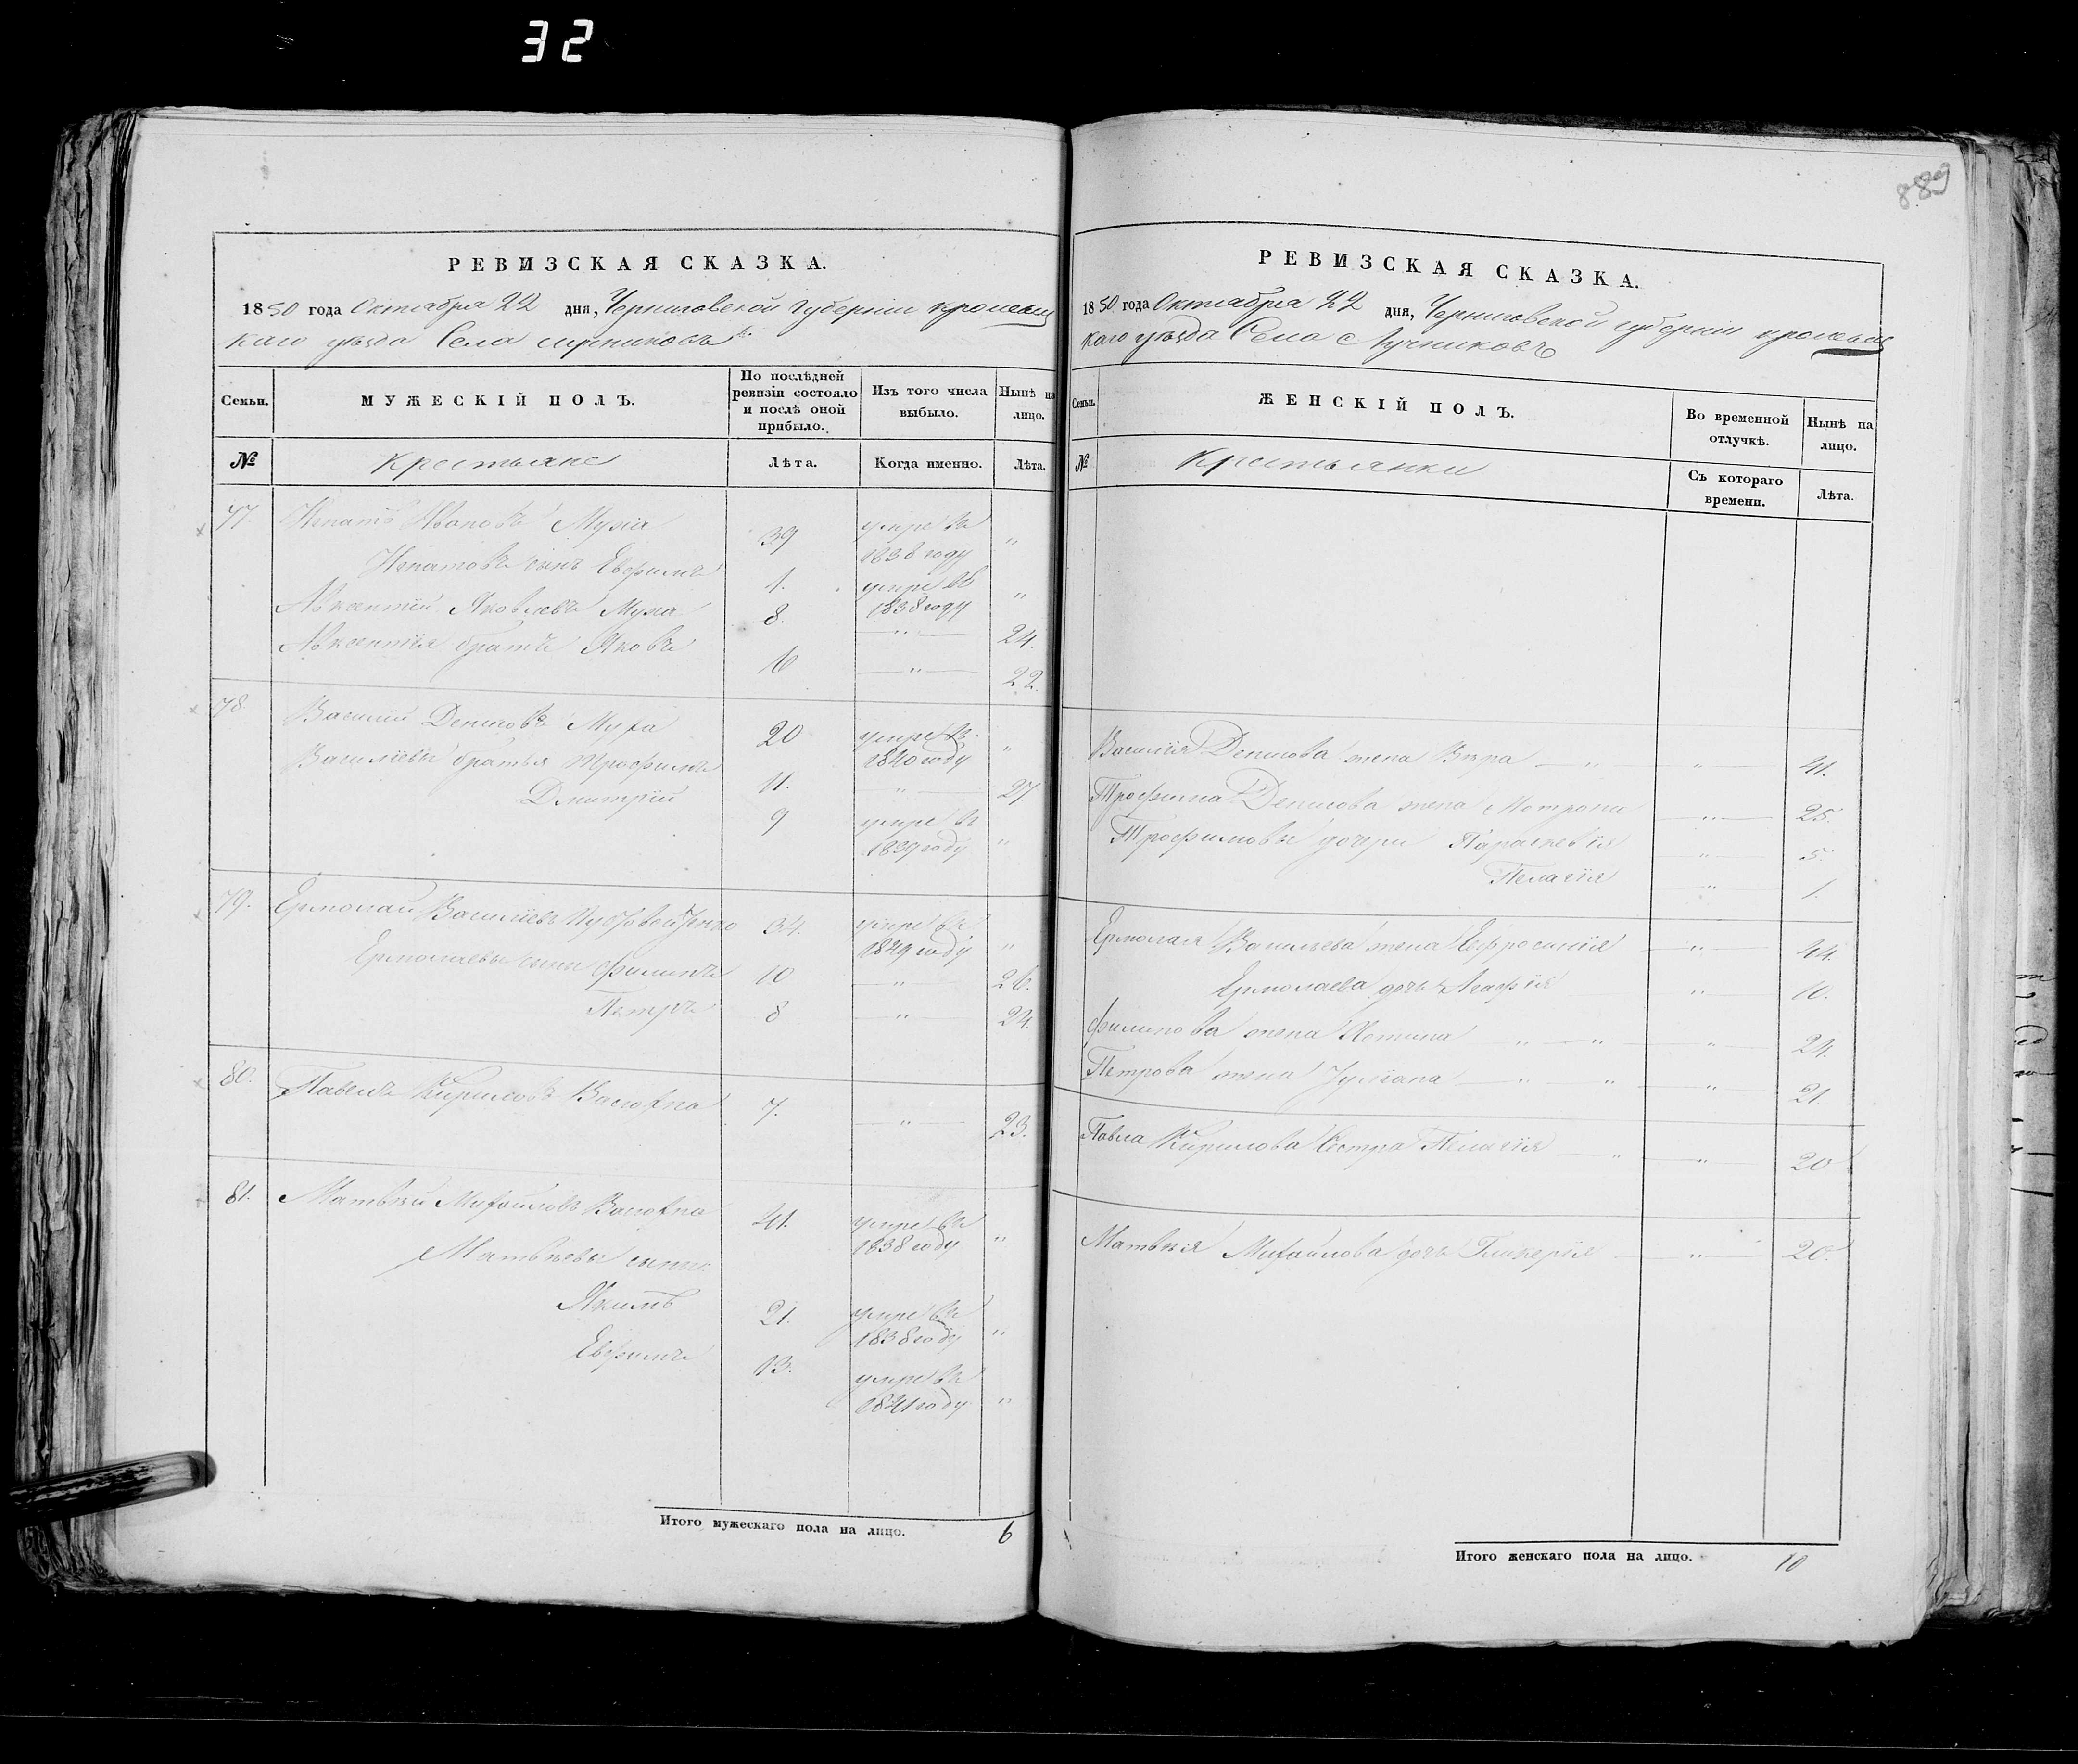 32
889
РЕВИЗСКАЯ СКАЗКА.
1850 года Октября 22 дня, Черниговской Губернии кролевец
каго уѣзда Села
Семьи.
МУЖЕСКІЙ ПОЛЪ.
По послѣдней
ревизіи состояло
и послѣ оной
прибыло.
Изъ того числа
выбыло.
Нынѣ на
лицо.
№
Крестьяне
Лѣта.
Когда именно.
Лѣта.
77. Игнатъ Ивановъ Муха 39 умре въ 1838 году "
Игнатовъ сынъ Евфимъ 1. умре въ 1838 году "
Авксентій Яковлевъ Муха 8. " 24.
Авксентія братъ Яковъ 6 " 22.
78. Василій Денисовъ Муха 20 умре въ 1840 году "
Василіевы братья Трофимъ 11. " 27.
Дмитрій 9 умре въ 1839 году "
79. Ермолай Василіевъ 34. умре въ 1849 году "
Ермолаевы сыны Филипъ 10 " 26.
Петръ 8 " 24.
80. Павелъ Кириловъ 7. " 23.
81. Матвѣй Михайловъ 41. умре въ 1838 году "
Матвѣевы сыны:
Якимъ 21. умре въ 1838 году "
Евфимъ 13. умре въ 1841 году "
Итого мужескаго пола на лицо. 6
РЕВИЗСКАЯ СКАЗКА.
1850 года Октября 22 дня, Черниговской губерніи кролевец
каго уѣзда Села Лучниковъ
Семьи.
ЖЕНСКІЙ ПОЛЪ.
Во временной
отлучкѣ.
Нынѣ на
лицо.
№
Крестьянки
Съ котораго
времени.
Лѣта.
Василія Денисова жена Вѣра " " 41.
Трофима Денисова жена Мотрона " 25.
Трофимовы дочери Параскевія " 5.
Пелагія " 1.
Ермолая Васильева жена Ефросинія " 44.
Ермолаева дочь Агафія " 10.
Филипова жена " " " 24.
Петрова жена Іуліана " " " 21
Павла Кирилова Сестра Пелагія " " 20
Матвѣя Михайлова дочь Гликерія " 20.
Итого женскаго пола на лицо. 10